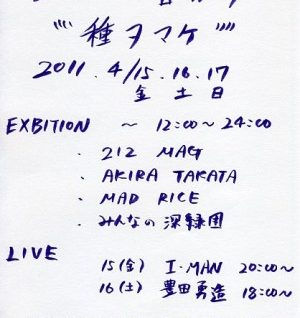 "" 種ヲマケ ""
2011. 4/15.16.17
金 土 日
EXBITION ~ 12:00~24:00
・ 212 MAG
・ AKIRA TAKATA
・ MAD RICE
・ みんなの深緑団
LIVE
15(金) I-MAN 20:00~
16(土) 豊田勇造 18:00~